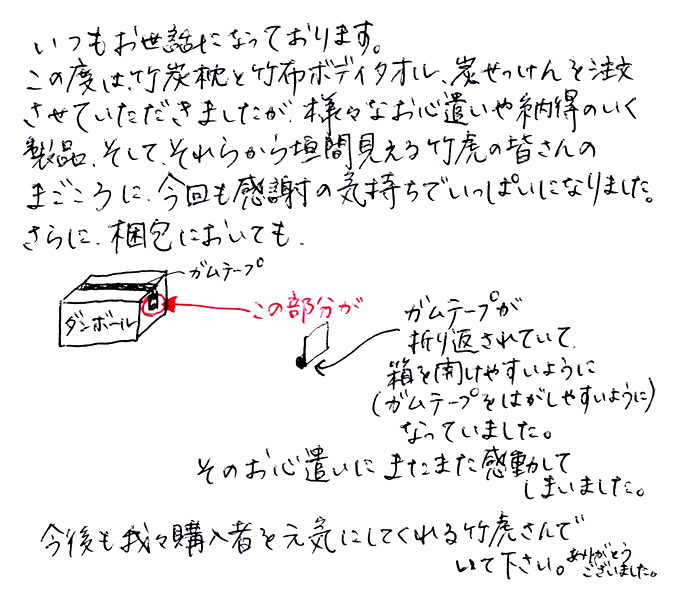 いつもお世話になっております。
この度は、竹炭枕と竹布ボディタオル、炭せっけんを注文
させていただきましたが、様々なお心遣いや納得のいく
製品、そして、それらから垣間見える竹虎の皆さんの
まごころに、今回も感謝の気持ちでいっぱいになりました。
さらに、梱包においても、
ガムテープ
ダンボール
この部分が
ガムテープが
折り返されていて、
箱を開けやすいように
(ガムテープをはがしやすいように)
なっていました。
そのお心遣いにまたまた感動して
しまいました。
今後も我々購入者を元気にしてくれる竹虎さんで
いて下さい。ありがとう
ございました。